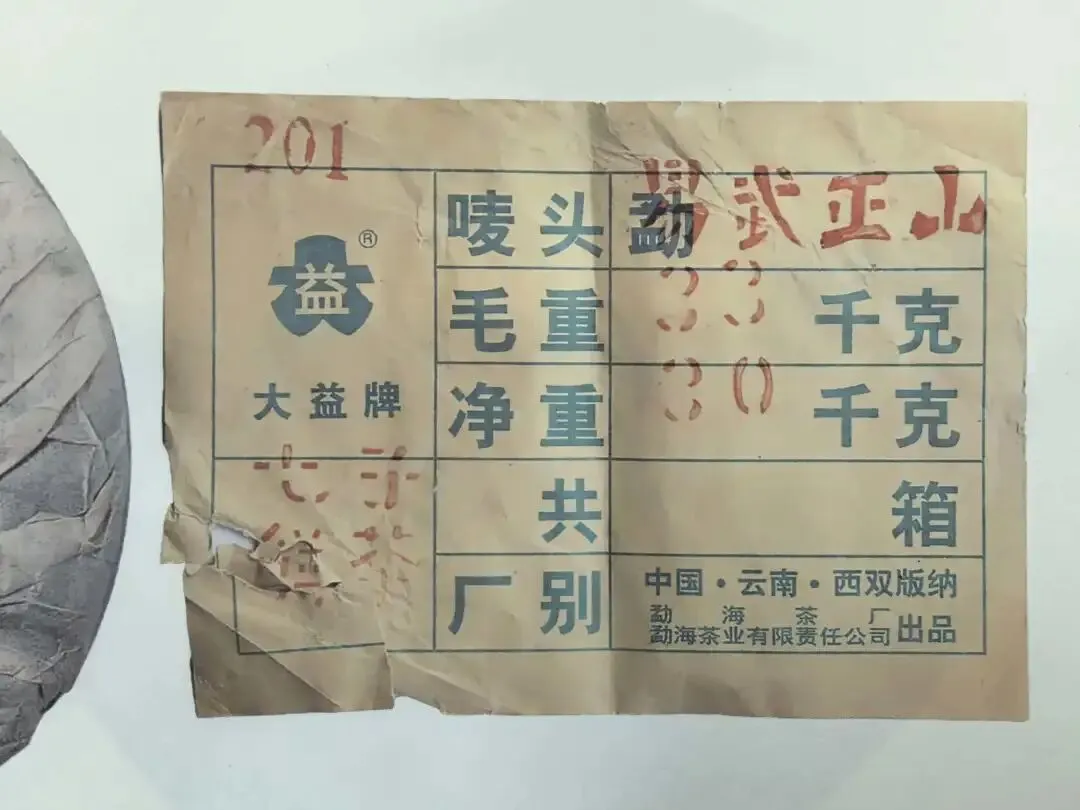 201
唛头 勐 易武正山
益®
毛重 33 千克
大益牌
净重 30 千克
七子
共 箱
饼茶
厂别 中国·云南·西双版纳
勐海茶厂
勐海茶业有限责任公司 出品